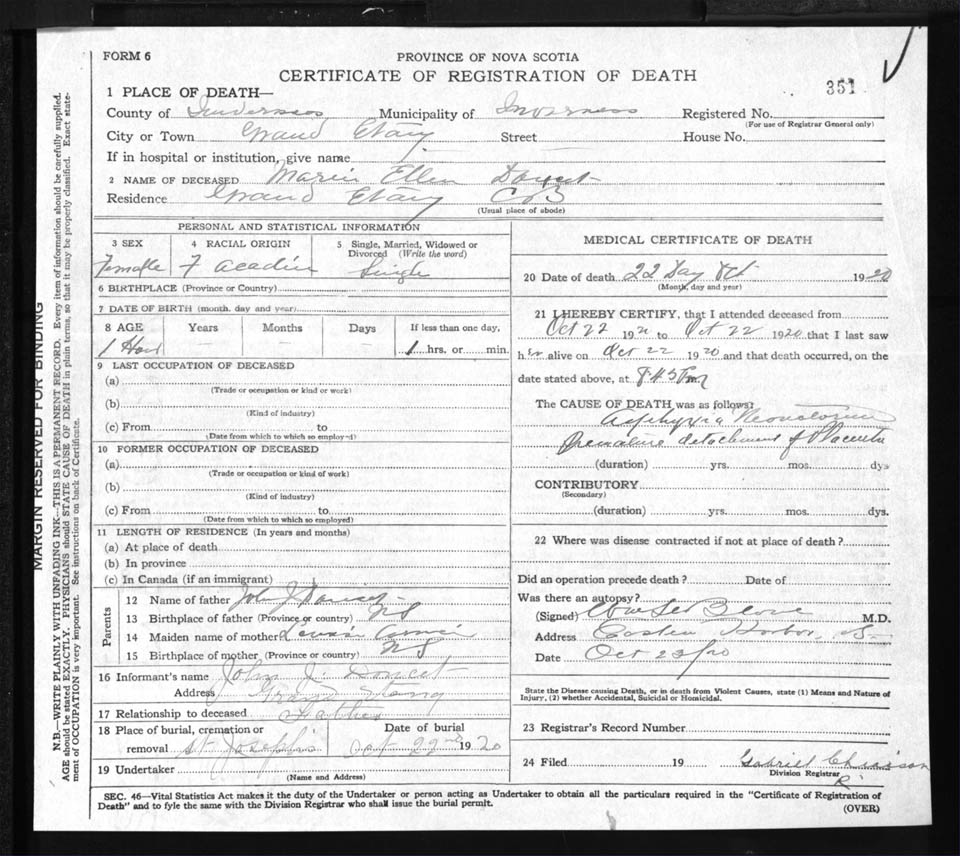 FORM 6
PROVINCE OF NOVA SCOTIA
CERTIFICATE OF REGISTRATION OF DEATH
351
1 PLACE OF DEATH—
County of Inverness Municipality of Inverness Registered No.
(For use of Registrar General only)
City or Town Grand Etang Street House No.
If in hospital or institution, give name
2 NAME OF DECEASED Marie Ellen Doucet
Residence Grand Etang C B
(Usual place of abode)
PERSONAL AND STATISTICAL INFORMATION
3 SEX
4 RACIAL ORIGIN
5 Single, Married, Widowed or
Divorced (Write the word)
Female F Single
6 BIRTHPLACE (Province or Country)
7 DATE OF BIRTH (month, day and year)
8 AGE Years Months Days If less than one day,
1 Hour — — — 1 hrs. or min.
9 LAST OCCUPATION OF DECEASED
(a)
(Trade or occupation or kind or work)
(b)
(Kind of industry)
(c) From to
(Date from which to which so employed)
10 FORMER OCCUPATION OF DECEASED
(a)
(Trade or occupation or kind of work)
(b)
(Kind of industry)
(c) From to
(Date from which to which so employed)
11 LENGTH OF RESIDENCE (In years and months)
(a) At place of death
(b) In province
(c) In Canada (if an immigrant)
Parents
12 Name of father John J Doucet
13 Birthplace of father (Province or country) NS
14 Maiden name of mother
15 Birthplace of mother (Province or country) NS
16 Informant's name John J. Doucet
Address Grand Etang
17 Relationship to deceased Father
18 Place of burial, cremation or Date of burial
removal St Joseph's Oct 22nd 1920
19 Undertaker
(Name and Address)
MEDICAL CERTIFICATE OF DEATH
20 Date of death 22 Day Oct 1920
(Month, day and year)
21 I HEREBY CERTIFY, that I attended deceased from
Oct 22 192 to Oct 22 1920 that I last saw
h er alive on Oct 22 1920 and that death occurred, on the
date stated above, at 8.45 Pm
The CAUSE OF DEATH was as follows:
Asphyxia Neonatorum
Premature detachment of Placenta
(duration) yrs. mos. dys
CONTRIBUTORY
(Secondary)
(duration) yrs. mos. dys.
22 Where was disease contracted if not at place of death?
Did an operation precede death? Date of
Was there an autopsy?
(Signed) M.D.
Address Harbor
Date Oct 23/20
State the Disease causing Death, or in death from Violent Causes, state (1) Means and Nature of
Injury, and (2) whether Accidental, Suicidal or Homicidal.
23 Registrar's Record Number
24 Filed 19 Gabriel Chiasson
Division Registrar
SEC. 46—Vital Statistics Act makes it the duty of the Undertaker or person acting as Undertaker to obtain all the particulars required in the "Certificate of Registration of
Death" and to fyle the same with the Division Registrar who shall issue the burial permit.
(OVER)
MARGIN RESERVED FOR BINDING
N.B.—WRITE PLAINLY WITH UNFADING INK—THIS IS A PERMANENT RECORD. Every item of information should be carefully supplied.
AGE should be stated EXACTLY. PHYSICIANS should STATE CAUSE OF DEATH in plain terms, so that it may be properly classified. Exact state-
ment of OCCUPATION is very important. See instructions on back of Certificate.